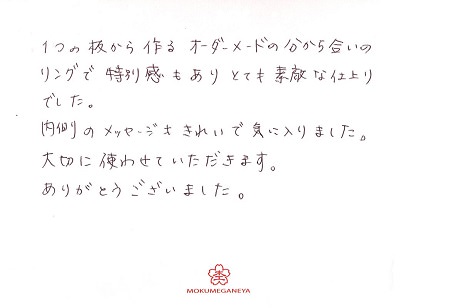 1つの板から作る オーダーメードの分かち合いの
リングで 特別感もあり とても 素敵な仕上り
でした。
内側のメッセージもきれいで気に入りました。
大切に使わせていただきます。
ありがとうございました。
MOKUMEGANEYA